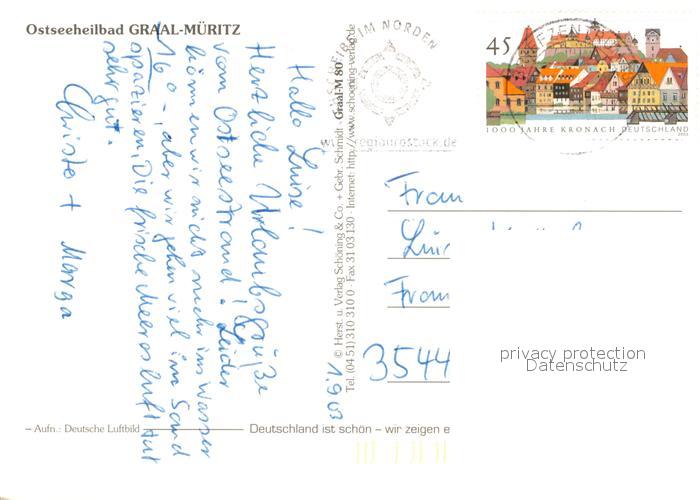 Ostseeheilbad GRAAL-MÜRITZ
Hallo Luise!
Herzliche Urlaubsgrüße
vom Ostseestrand. Leider
können wir nicht mehr ins Wasser
16° -, aber wir gehen viel im Sand
spazieren. Die frische Meeresluft tut
sehr gut.
Christe + Marga
1.9.03
© Herst. u. Verlag Schöning & Co. + Gebr. Schmidt Graal-M 80
Tel. (04 51) 310 310 0 · Fax 31 03 130 · Internet: http://www.schoening-verlag.de
IM NORDEN
45
1000 JAHRE KRONACH DEUTSCHLAND
Frau
Frau
3544
privacy protection
Datenschutz
– Aufn.: Deutsche Luftbild
Deutschland ist schön – wir zeigen e